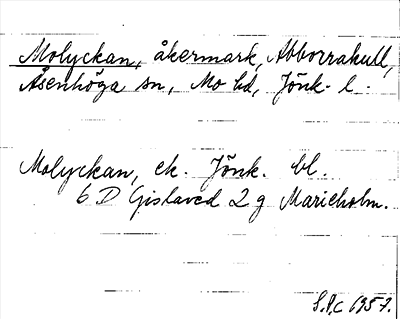 Molyckan, åkermark, Abborrahult,
Åsenhöga sn, Mo hd, Jönk. l.
Molyckan, ek. Jönk. bl.
6 D Gislaved 2 g Marieholm.
S.P,C 1957.